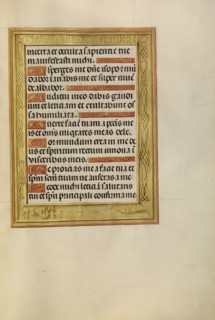 incerta et occulta sapientie tue
manifestasti michi.
Asperges me dñe ysopo et mū
dabor lavabis me et super nivē
dealbabor.
Auditui meo dabis gaudi
um et leticiam et exultabunt os
sa humiliata.
Averte faciē tuam a pctīs me
is et oms iniqtates meas dele.
Cor mundum crea in me de
us et spiritum rectum innova ī
visceribus meis.
Ne proicias me a facie tua et
spm sctū tuum ne auferas a me.
Redde michi leticiā salutaris
tui et spū principali confirma me